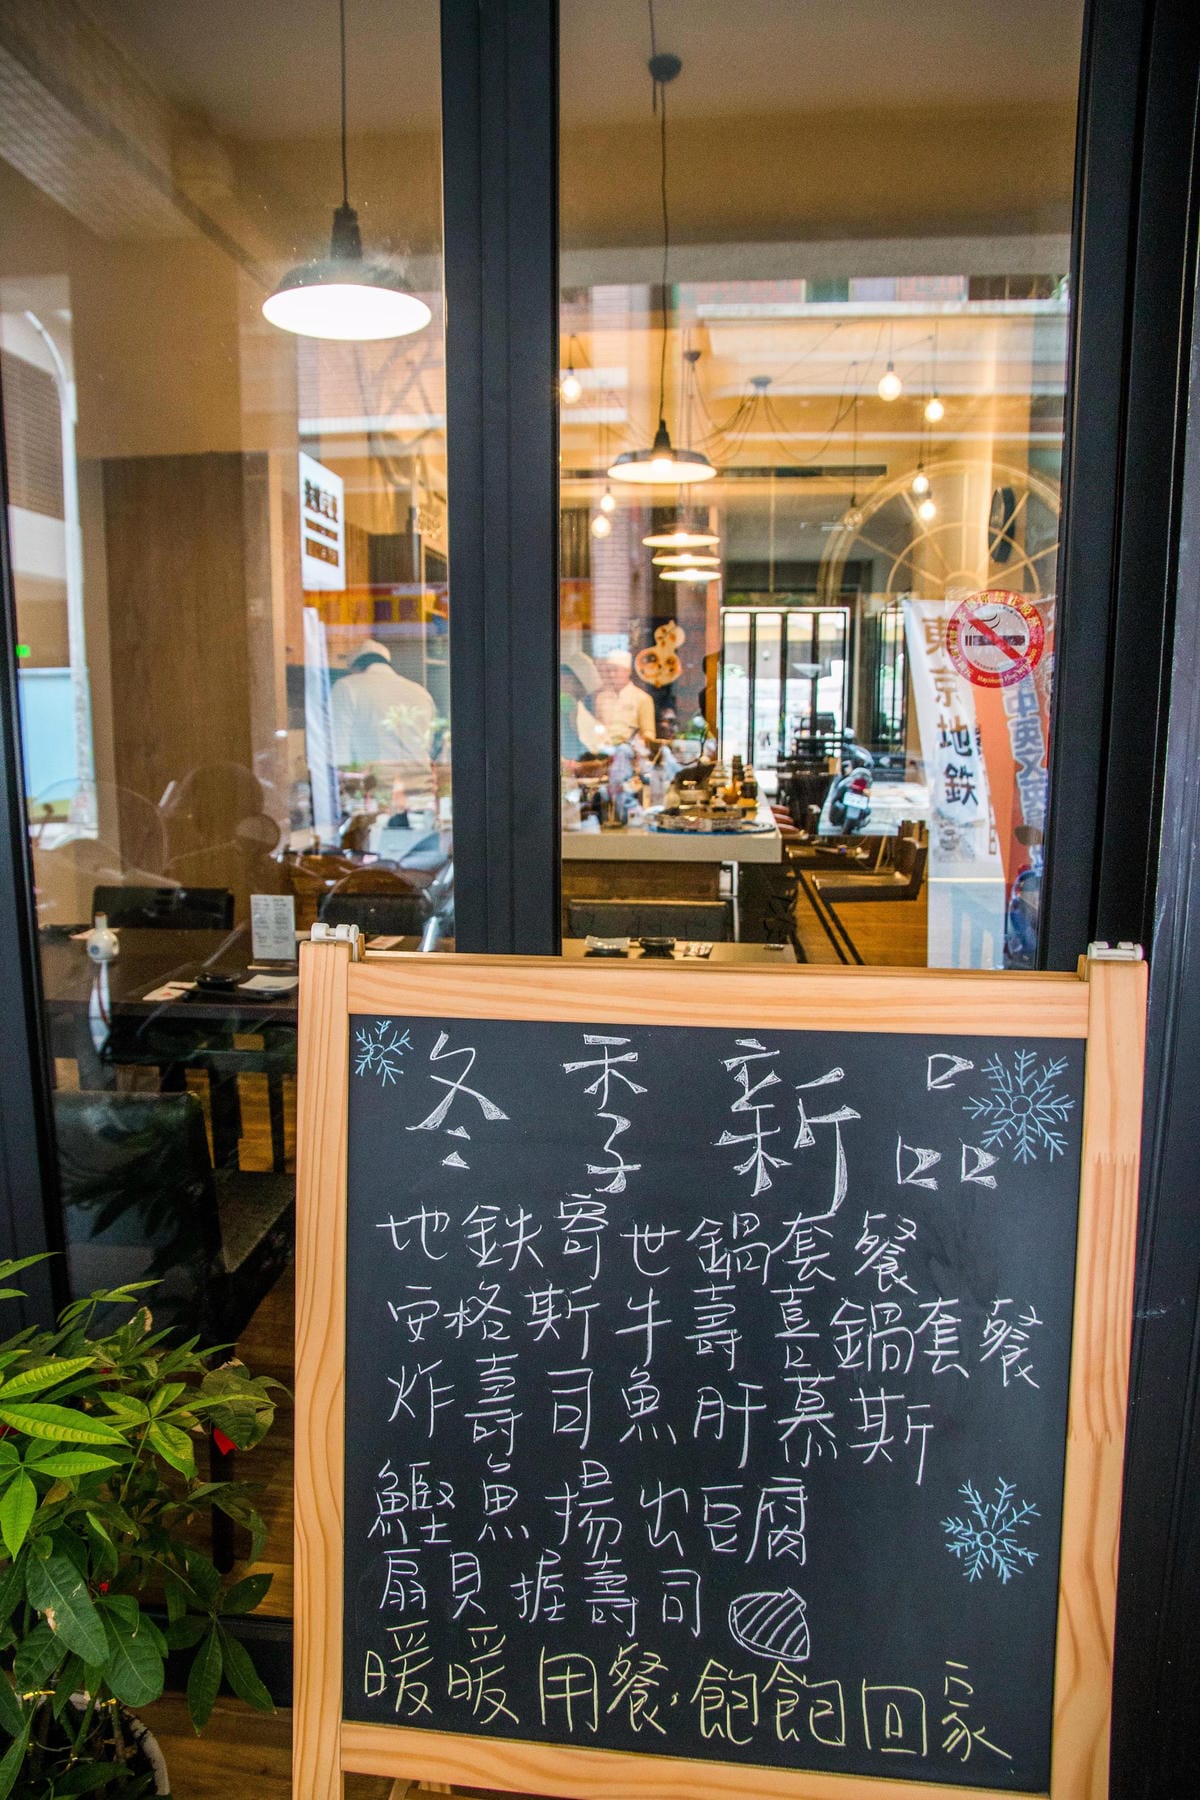 東京地鉄
中英文
冬季新品
地鉄寄世鍋套餐
安格斯牛壽喜鍋套餐
炸壽司魚肝慕斯
鰹魚揚出豆腐
扇貝握壽司
暖暖用餐,飽飽回家